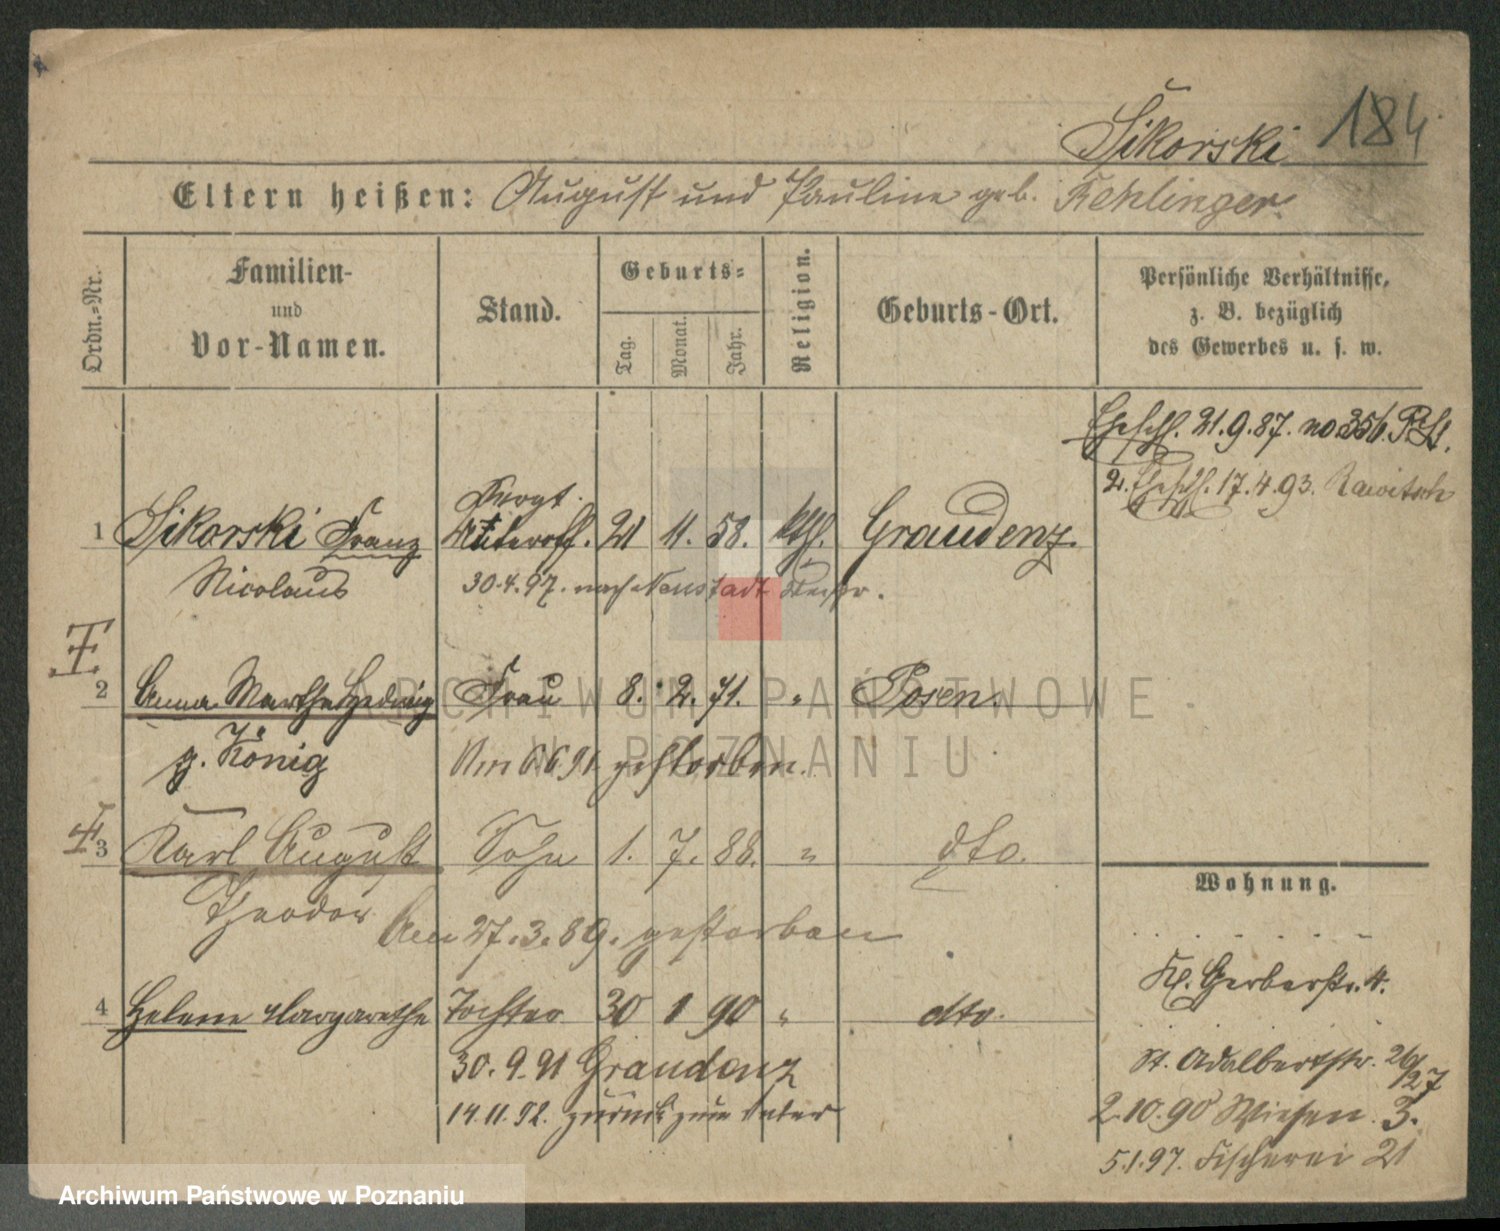 Sikorski 184
Eltern heißen: August und Pauline geb. Kehlinger
Ordn.-Nr.
Familien-
und
Vor-Namen.
Stand.
Geburts-
Tag. Monat. Jahr.
Religion.
Geburts-Ort.
Persönliche Verhältnisse,
z. B. bezüglich
des Gewerbes u. s. w.
Eheschl. 21.9.87. no 356. P. St.
2. Eheschl. 17.4.93. Rawitsch
1 Sikorski Franz Sergt. Unteroff. 21 11. 58. kthl. Graudenz.
Nicolaus 30.4.97. nach Neustadt
2 Anna Martha Hedwig Frau 8. 2. 71. " Posen.
g. König Am 6.6.91 gestorben.
3 Karl August Sohn 1. 7. 88. " dto.
Theodor Am 27.3.89. gestorben
4 Helene Margarethe Tochter 30 1 90 " dto.
30.9.91 Graudenz
14.11.92. zurück zum Vater
Wohnung.
Kl. Gerberstr. 4.
St. Adalbertstr. 26/27
2.10.90 Wiesen 3.
5.1.97. Fischerei 21
ARCHIWUM PAŃSTWOWE
W POZNANIU
Archiwum Państwowe w Poznaniu